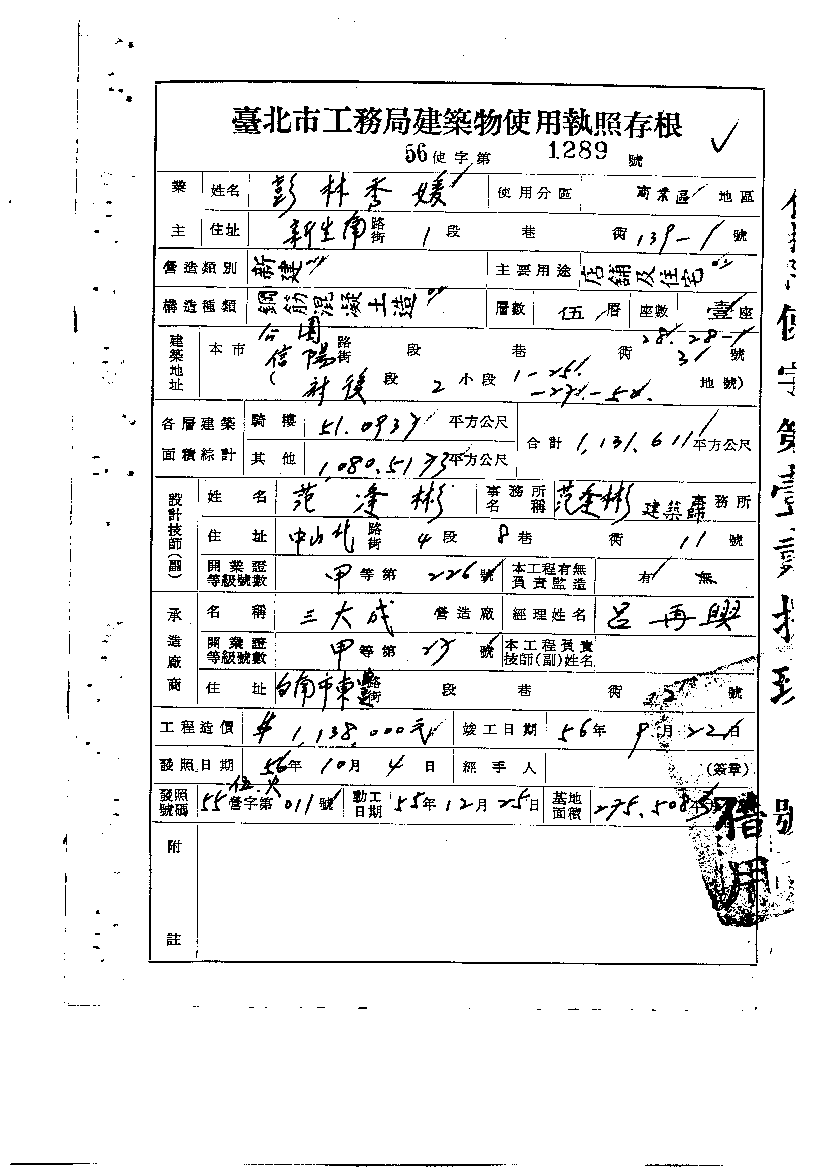 臺北市工務局建築物使用執照存根
56使字第 1289 號
業主 姓名 彭林秀媛 使用分區 商業區 地區
住址 新生南路街 1段 巷 街 139-1 號
營造類別 新建 主要用途 店舖及住宅
構造種類 鋼筋混凝土造 層數 伍層 座數 壹座
建築地址 本市 公園 信陽路街 段 巷 街 28.28-1 31 號
(社後段 2小段 地號)
各層建築面積綜計 騎樓 平方公尺 合計 1,131.611 平方公尺
其他 平方公尺
設計技師(副) 姓名 范逢彬 事務所名稱 范逢彬建築師事務所
住址 中山北路街 4段 8巷 街 11 號
開業證等級號數 甲等第 226 號 本工程有無負責監造 有 無
承造廠商 名稱 三大成 營造廠 經理姓名 呂再興
開業證等級號數 甲等第 號 本工程負責技師(副)姓名
住址 台南市東 路街 段 巷 街 號
工程造價 $1,138,000元 竣工日期 56年9月22日
發照日期 56年10月4日 經手人 (簽章)
發照號碼 55營字第011號 動工日期 55年12月25日 基地面積 275.508
附註
借用